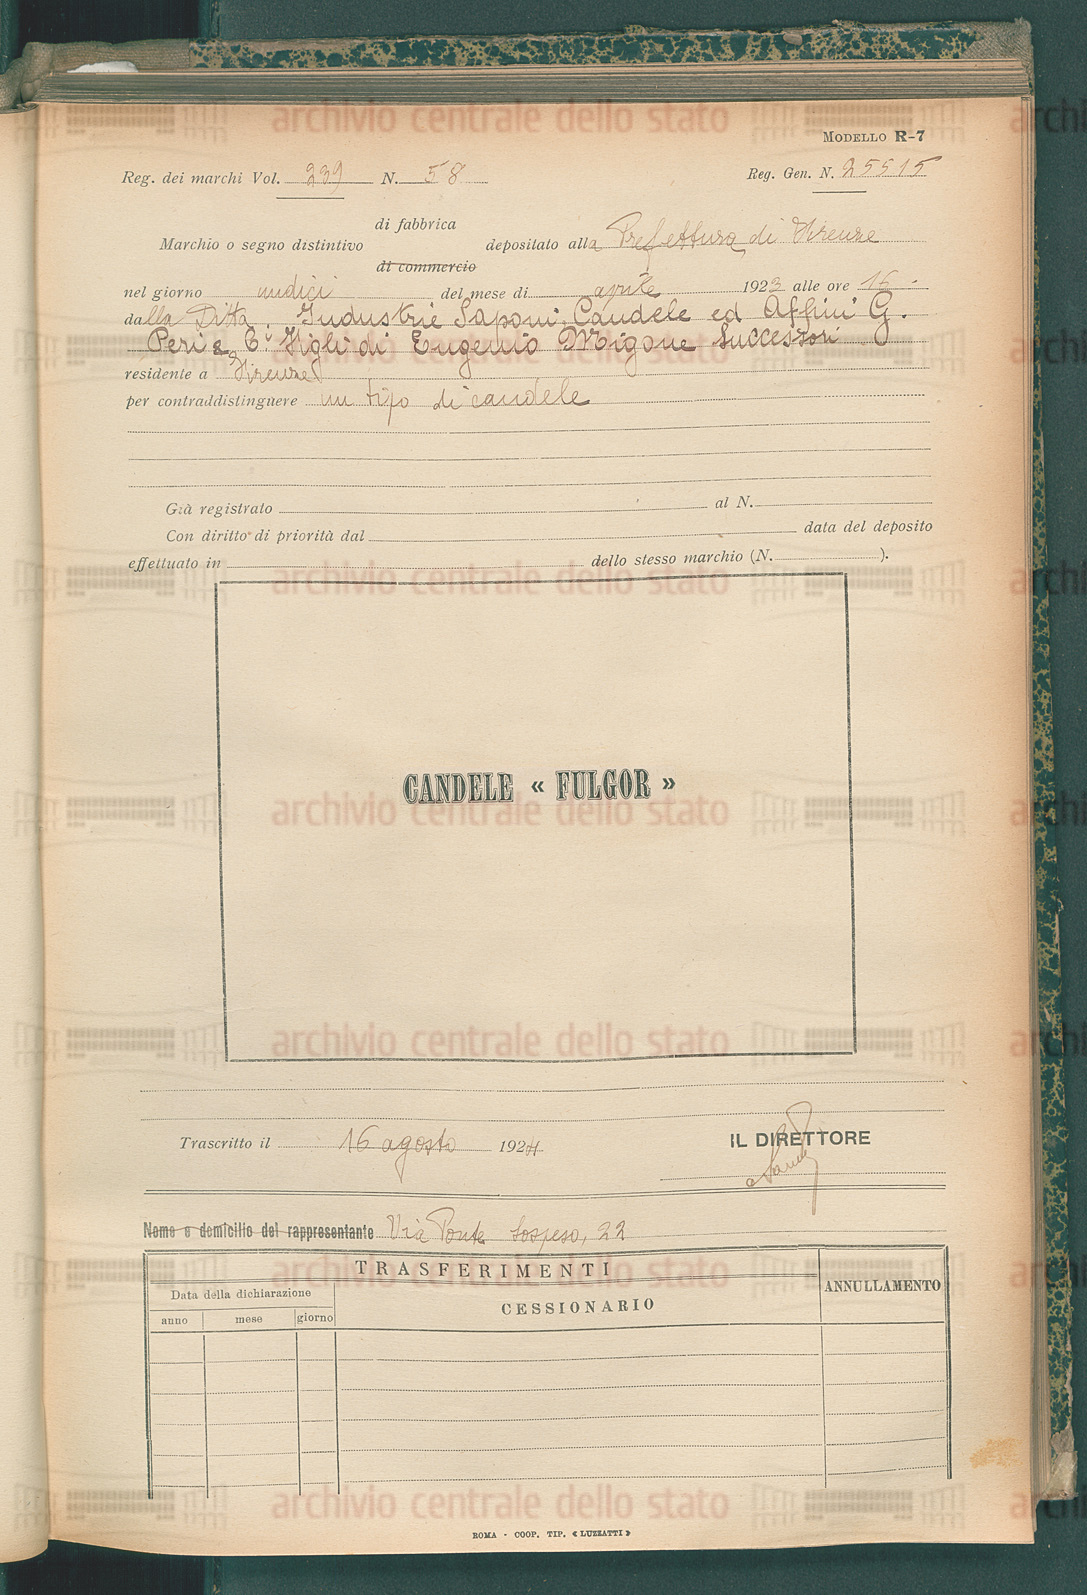 MODELLO R-7
Reg. dei marchi Vol. 239 N. 58 Reg. Gen. N. 25515
di fabbrica
Marchio o segno distintivo depositato alla Prefettura di Firenze
di commercio
nel giorno undici del mese di aprile 1923 alle ore 16
dalla Ditta: Industrie Saponi Candele ed Affini G.
Peri e C.i Figli di Eugenio Migone Successori
residente a Firenze
per contraddistinguere un tipo di candele
Già registrato al N.
Con diritto di priorità dal data del deposito
effettuato in dello stesso marchio (N. ).
CANDELE « FULGOR »
Trascritto il 16 agosto 1924
IL DIRETTORE
Nome e domicilio del rappresentante Via Ponte Sospeso, 22
TRASFERIMENTI
ANNULLAMENTO
Data della dichiarazione
CESSIONARIO
anno mese giorno
ROMA - COOP. TIP. « LUZZATTI »
archivio centrale dello stato